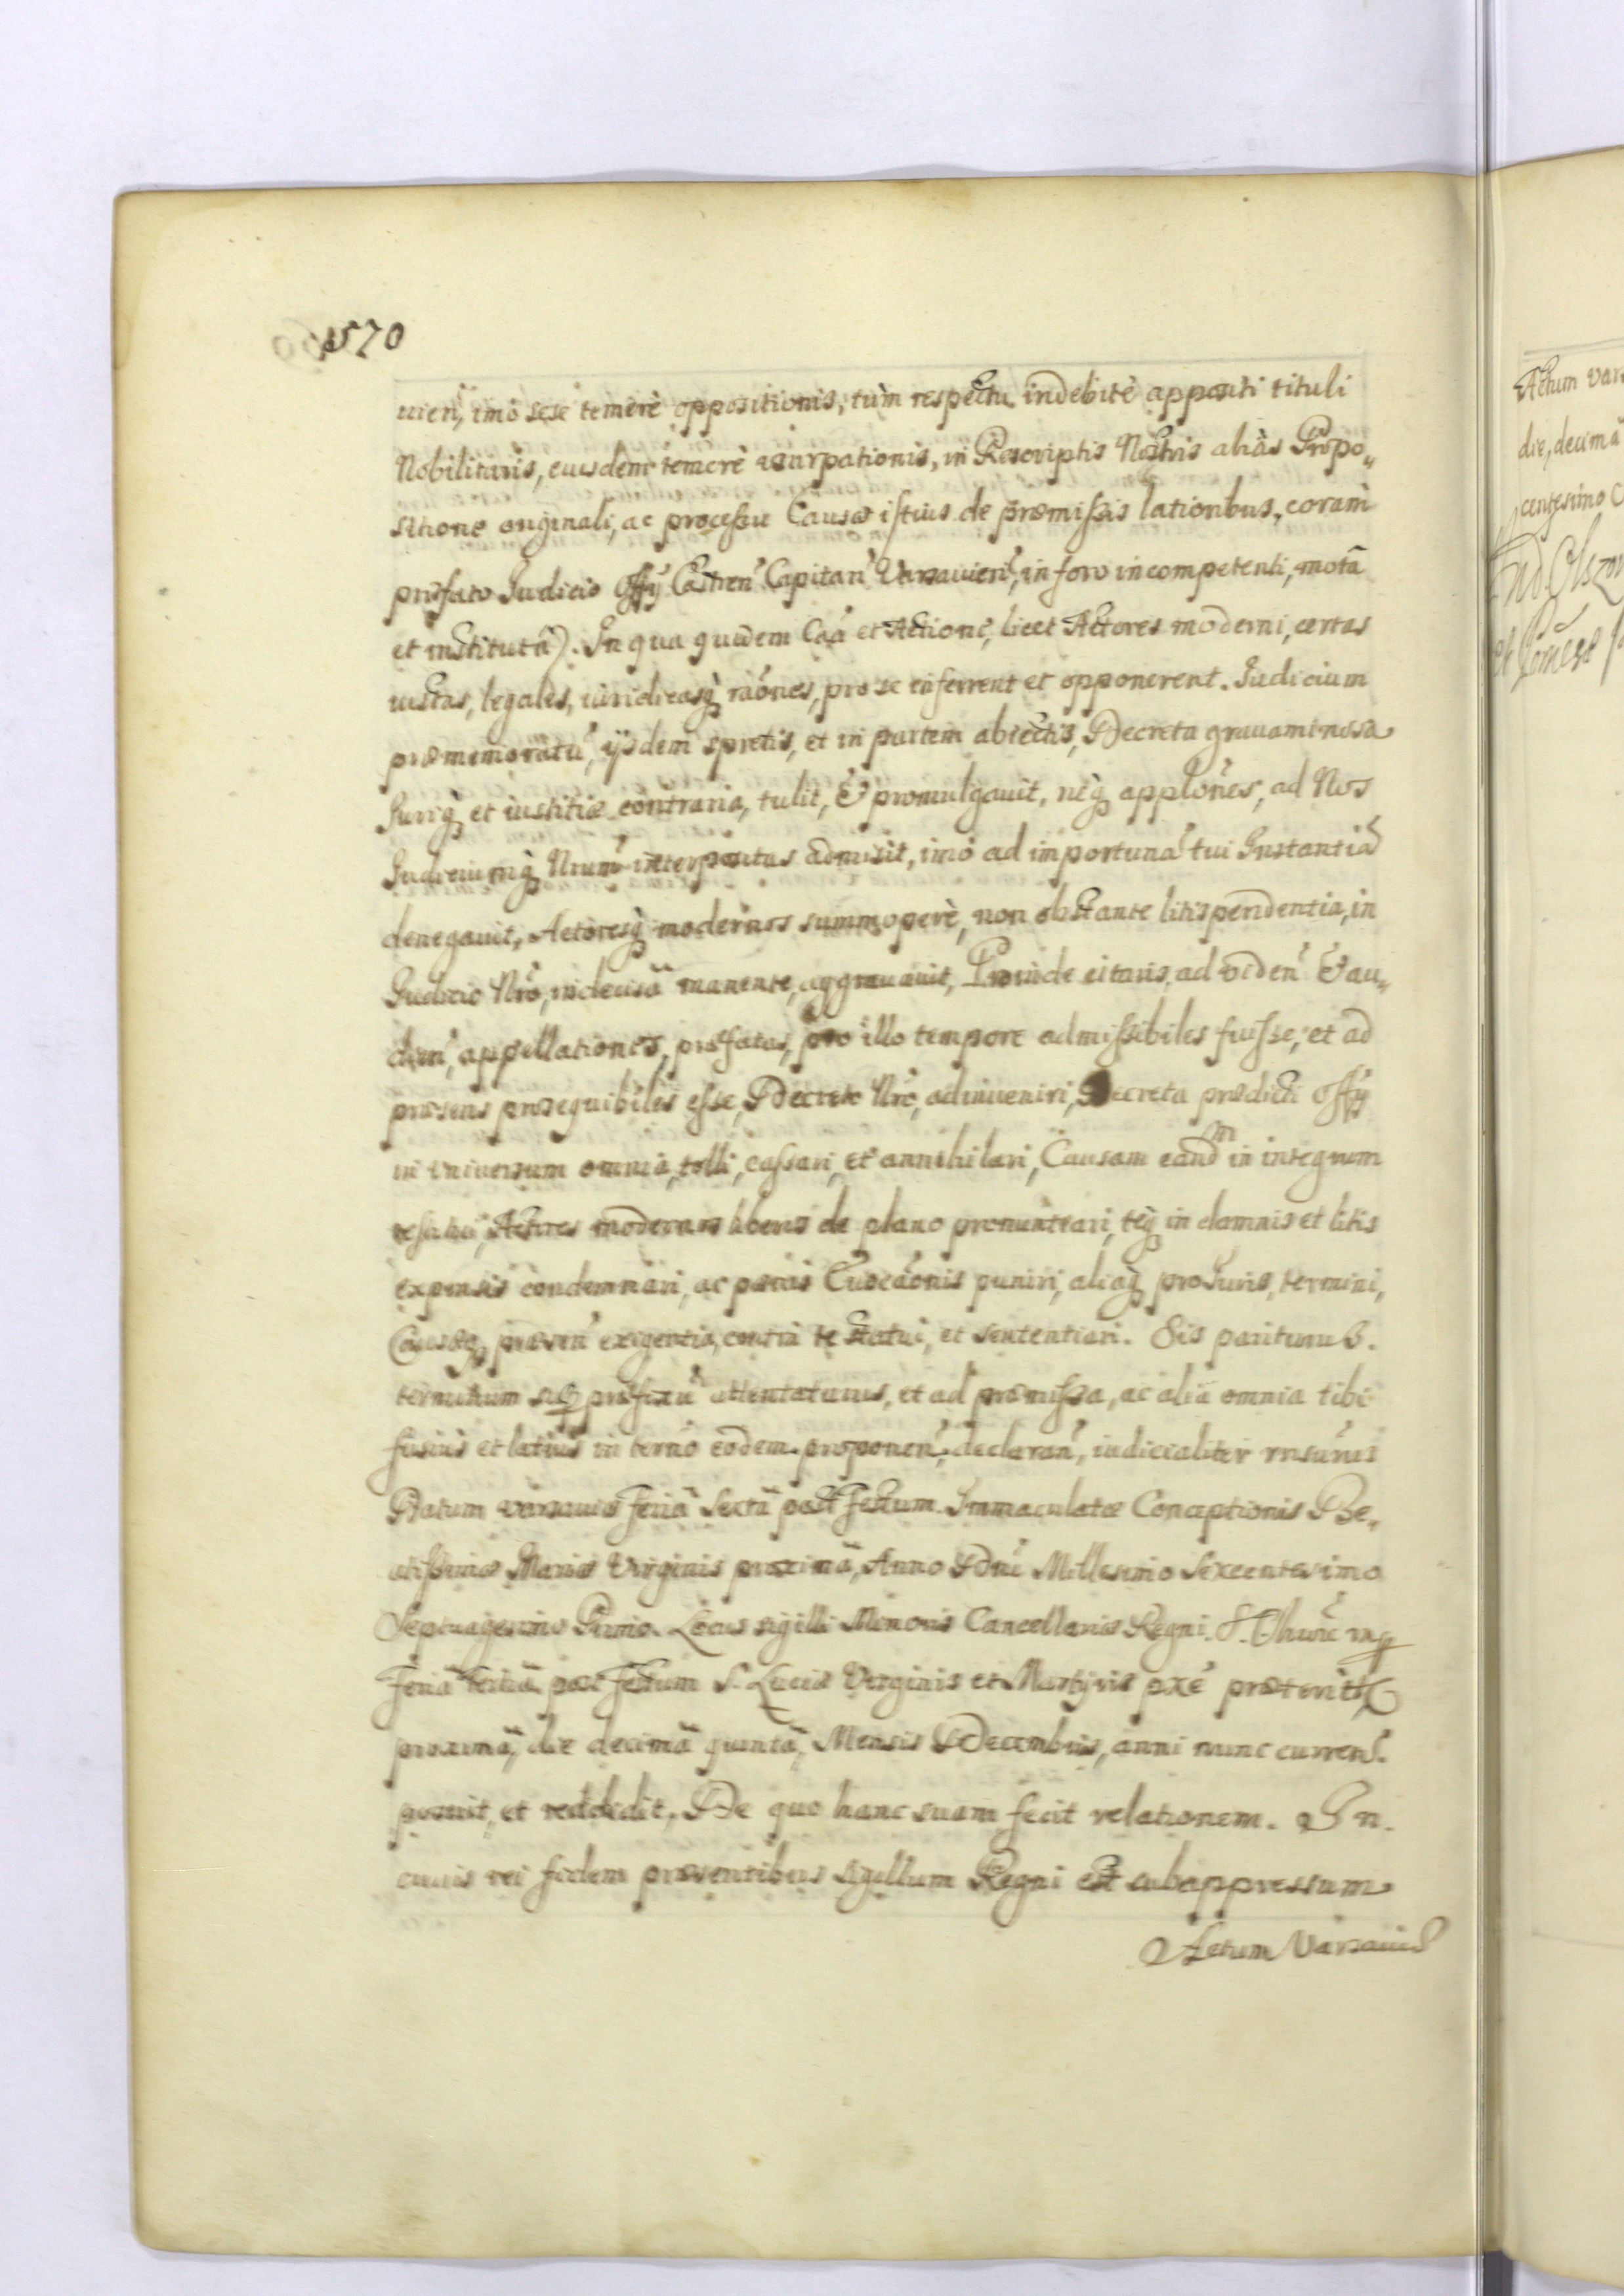 1570
uien, imo sese temerè oppositionis, tùm respectu indebitè appositi tituli
Nobilitaris, eiusdemr temerè usurpationis, in Rescriptis Nostris aliàs Propo„
sitione originali, ac processu Causæ istius de præmissis lationibus, coram
præfato Iudicio Offÿ Castren Capitan Varsauien, in foro incompetenti, motâ
et institutâ). In qua quidem Caâ et Actione, licet Actores moderni, certas
iustas, legales, iuridicasq raones, pro se inferrent et opponerent. Iudicium
præmemoratu, ijsdem spretis, et in partem abiectis, Decreta grauaminosa
Iuriq et iustitiæ contraria, tulit, & promulgauit, neq applones, ad Nos
Iudiciumq Nrum interpositas admisit, imò ad importuna tui Instantia
denegauit, Actoresq modernos summoperè, non obstante litispendentia, in
Iudicio Nro, indecisâ manente, aggrauauit, Proinde citaris, ad viden & au„
dien, appellationes, præfatas, pro illo tempore admissibiles fuisse, et ad
præsens prosequibiles esse, Decreto Nro, adinueniri, Decreta prædicti Offÿ
in vniuersum omnia, tolli, cassari, et annihilari, Causam eandm in integrum
restitui, Actores modernos liberos de plano pronuntiari, teq in damnis et litis
expensis condemnari, ac pœnis Euocaonis puniri, aliaq pro Iuris, termini,
Causæq præsen exigentia, contra te statui, et sententiari. Sis pariturus.
terminum sup præfixu attentaturus, et ad præmissa, ac alia omnia tibi
fusius et latius in terno eodem proponen, declaran, iudicialiter rnsurus
Datum Varsauiæ Feriâ Sextâ post Festum Immaculatæ Conceptionis Be„
atissimæ Mariæ Virginis proximâ, Anno Dni Millesimo Sexcentesimo
Septuagesimo Primo. Locus sigilli Minoris Cancellariæ Regni.
Feriâ tertiâ post Festum S. Luciæ Virginis et Martyris pxe præteritæ
proximâ, die decimâ quintâ, Mensis Decembris, anni nunc curren.
posuit, et reddidit, De quo hanc suam fecit relationem. In
cuius rei fidem præsentibus sigillum Regni est subappressum
Actum Varsauiæ
Actum Vars
die, decimâ
centesimo